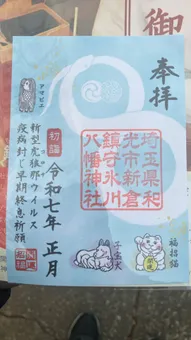 奉拝
埼玉県和
光市新倉
鎮守氷川
八幡神社
福招猫
子宝犬
令和七年 正月
初詣
アマビエ
新型コロナウイルス
疫病封じ早期終息祈願
御